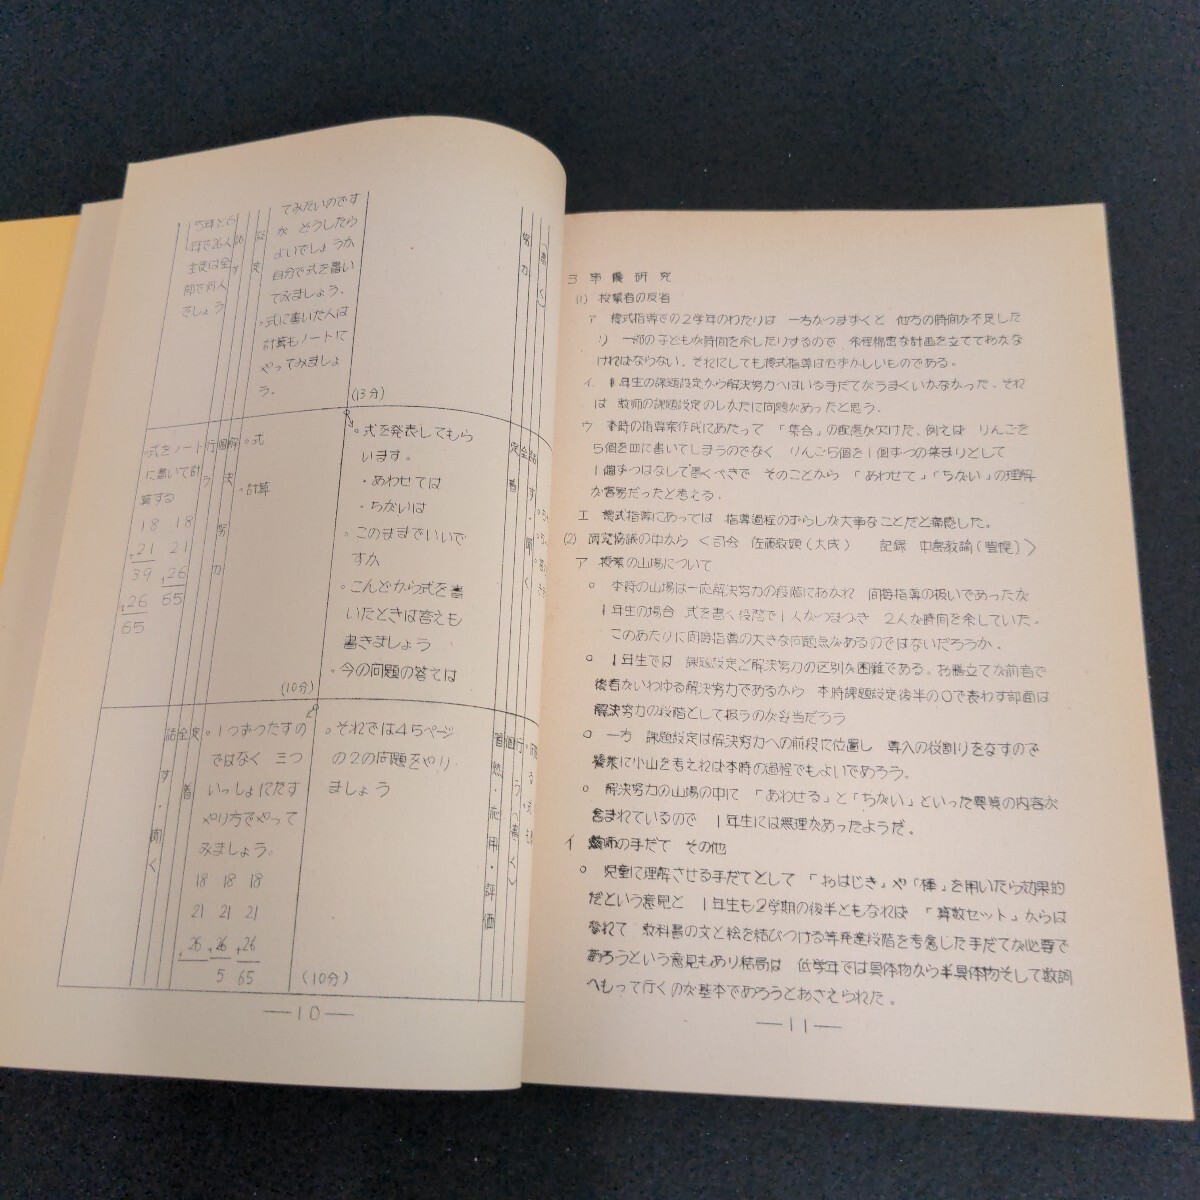 5年と6
年で26人
生徒は全
部で何人
でしょう
てみたいのです
が どうしたら
よいでしょうか
自分で式を書い
てみましょう.
○式に書いた人は
計算もノートに
やってみましょ
う.
(13分)
○式をノート
に書いて計
算する
18 18
+21 21
39 +26
+26 65
65
行う
個
解決努力
○式
○計算
(10分)
○式を発表してもら
います。
・あわせては
・ちがいは
○このままでいいで
すか
○こんどから式を書
いたときは答えも
書きましょう
○今の問題の答えは
定着
全
話す・聞く
話す・聞く
全
定着
○1つずつたすの
ではなく 三つ
いっしょにたす
やり方でやって
みましょう。
18 18 18
21 21 21
+26 +26 +26
5 65
○それでは45ページ
の2の問題をやり
ましょう
(10分)
―10―
3 事後研究
(1) 授業者の反省
ア 複式指導での2学年のわたりは 一方がつまずくと 他方の時間が不足した
り 一部の子どもが時間を余したりするので 余程綿密な計画を立ててわたらな
ければならない. それにしても複式指導はむずかしいものである.
イ 1年生の課題設定から解決努力へはいる手だてがうまくいかなかった. それ
は 教師の課題設定のしかたに問題があったと思う.
ウ 本時の指導案作成にあたって 「集合」の配慮が欠けた. 例えば りんごを
5個を皿に書いてしまうのでなく りんご5個を1個ずつの集まりとして
1個ずつはなして書くべきで そのことから 「あわせて」「ちがい」の理解
が容易だったと考える.
エ 複式指導にあっては 指導過程のずらしが大事なことだと痛感した.
(2) 研究協議の中から <司会 佐藤教頭(大成) 記録 中島教諭(豊幌)>
ア 授業の山場について
○ 本時の山場は一応解決努力の段階におかれ 同時指導の扱いであったが
1年生の場合 式を書く段階で1人がつまづき 2人が時間を余していた.
このあたりに同時指導の大きな問題点があるのではないだろうか.
○ 1年生では 課題設定と解決努力の区別が困難である. お膳立てが前者で
後者がいわゆる解決努力であるから 本時課題設定後半の○で表わす部面は
解決努力の段階として扱うのが妥当だろう
○ 一方 課題設定は解決努力への前段に位置し 導入の役割りをなすので
授業に小山を考えれば本時の過程でもよいであろう。
○ 解決努力の山場の中に 「あわせる」と「ちがい」といった異質の内容が
含まれているので 1年生には無理があったようだ。
イ 教師の手だて その他
○ 児童に理解させる手だてとして 「おはじき」や「棒」を用いたら効果的
だという意見と 1年生も2学期の後半ともなれば 「算数セット」からは
なれて 教科書の文と絵を結びつける等発達段階を考慮した手だてが必要で
あろうという意見もあり結局は 低学年では具体物から半具体物そして数詞
へもって行くのが基本であろうとおさえられた.
―11―